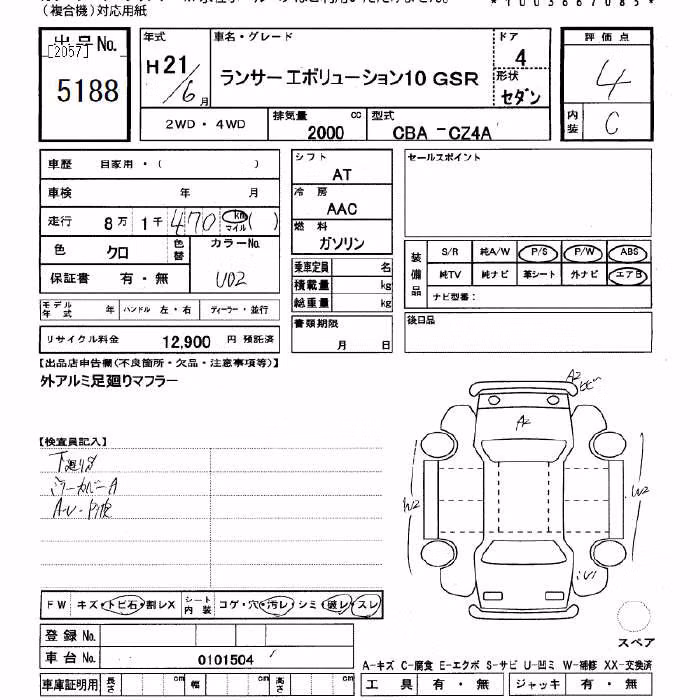 (複合機)対応用紙
*1003667085*
出品No.
[2057]
5188
年式
H21/6月
車名・グレード
ランサーエボリューション10 GSR
ドア
4
形状
セダン
評価点
4
内装
C
2WD・4WD
排気量 cc
2000
型式
CBA-CZ4A
車歴 自家用・( )
車検 年 月
走行 8万 1千 470 km マイル ( )
色 クロ
色替
カラーNo.
U02
保証書 有・無
モデル年式 年
ハンドル 左・右
ディーラー・並行
リサイクル料金 12,900 円 預託済
シフト
AT
冷房
AAC
燃料
ガソリン
乗車定員 名
積載量 kg
総重量 kg
書類期限
月 日
セールスポイント
装備品
S/R 純A/W P/S P/W ABS
純TV 純ナビ 革シート 外ナビ エアB
ナビ型番:
後日品
【出品店申告欄(不良箇所・欠品・注意事項等)】
外アルミ足廻りマフラー
【検査員記入】
下廻りS
ミラーカバーA
A2
A2
W2
W2
U1
FW キズ・トビ石・割レX
シート内装 コゲ・穴・汚レ・シミ・破レ・スレ
登録No.
車台No. 0101504
車庫証明用 長さ cm 幅 cm 高さ cm
スペア
A-キズ C-腐食 E-エクボ S-サビ U-凹ミ W-補修 XX-交換済
工具 有・無 ジャッキ 有・無